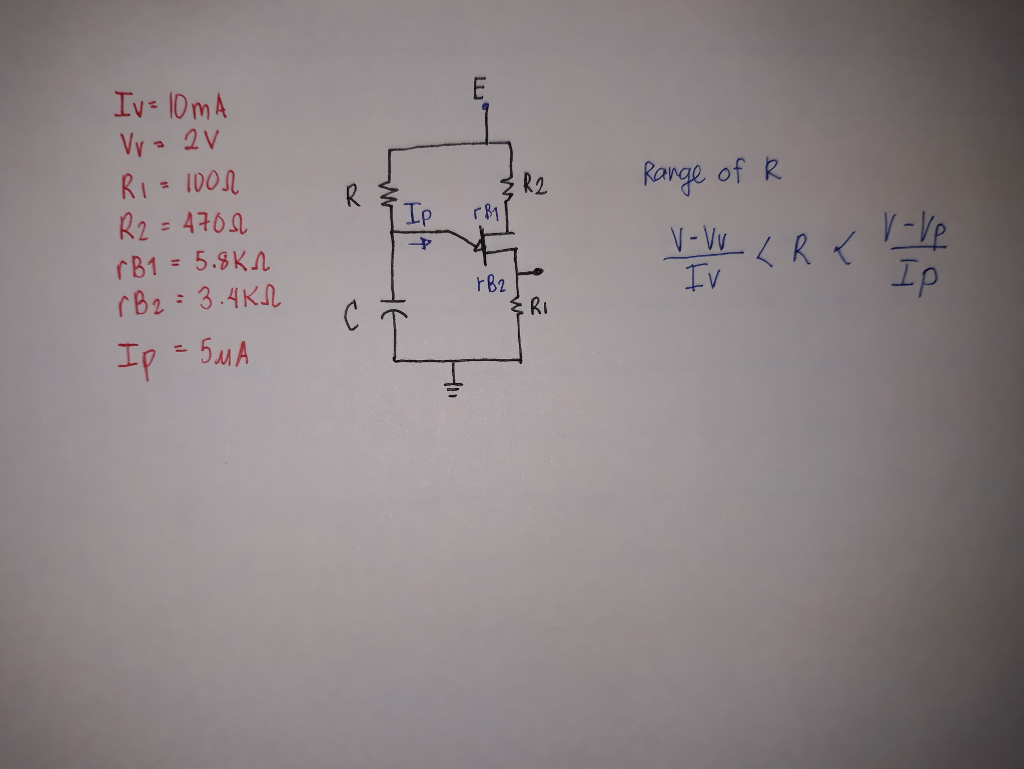 Iv = 10mA
Vv = 2V
R1 = 100Ω
R2 = 470Ω
rB1 = 5.8KΩ
rB2 = 3.4KΩ
Ip = 5μA
E
R
R2
Ip
rB1
rB2
C
R1
Range of R
V-Vv / Iv < R < V-Vp / Ip